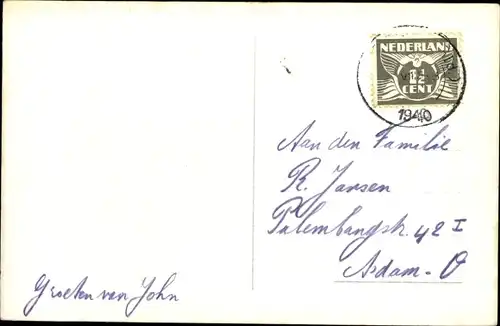 NEDERLAND
1½
CENT
1940
Aan den Familie
R. Jansen
Palembangstr. 42 I
Asdam - O
Groeten van John